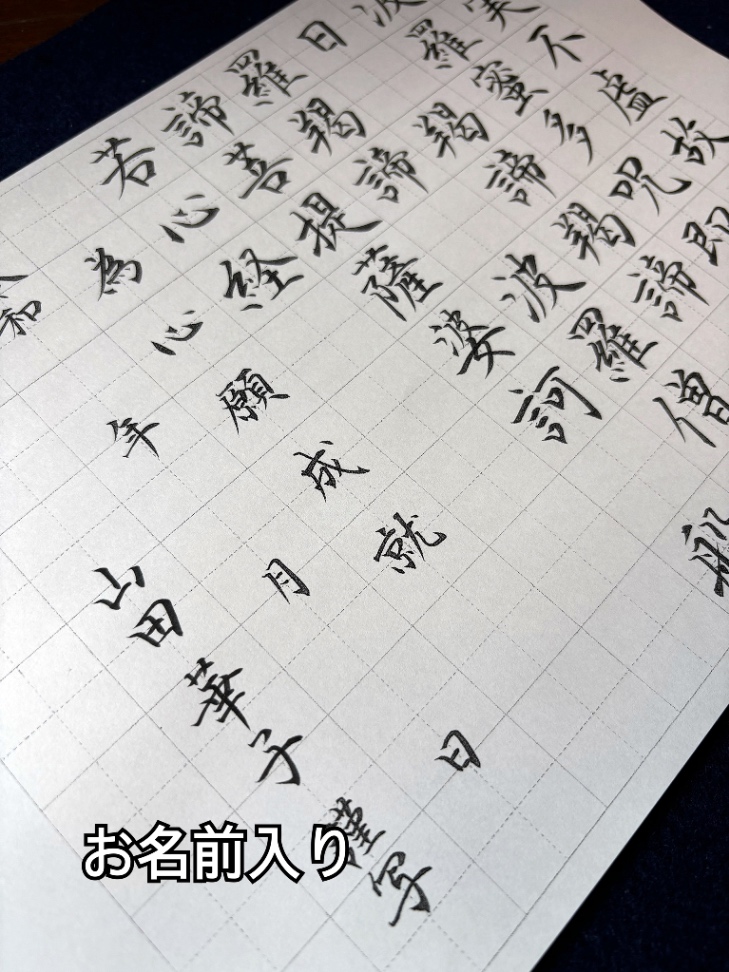 実不虚故
波羅蜜多呪即
曰 羯諦羯諦
羅羯諦 波羅僧
諦 菩提薩婆訶 般
若心経
為心願成就
令和 年 月 日
山田華子謹写
お名前入り